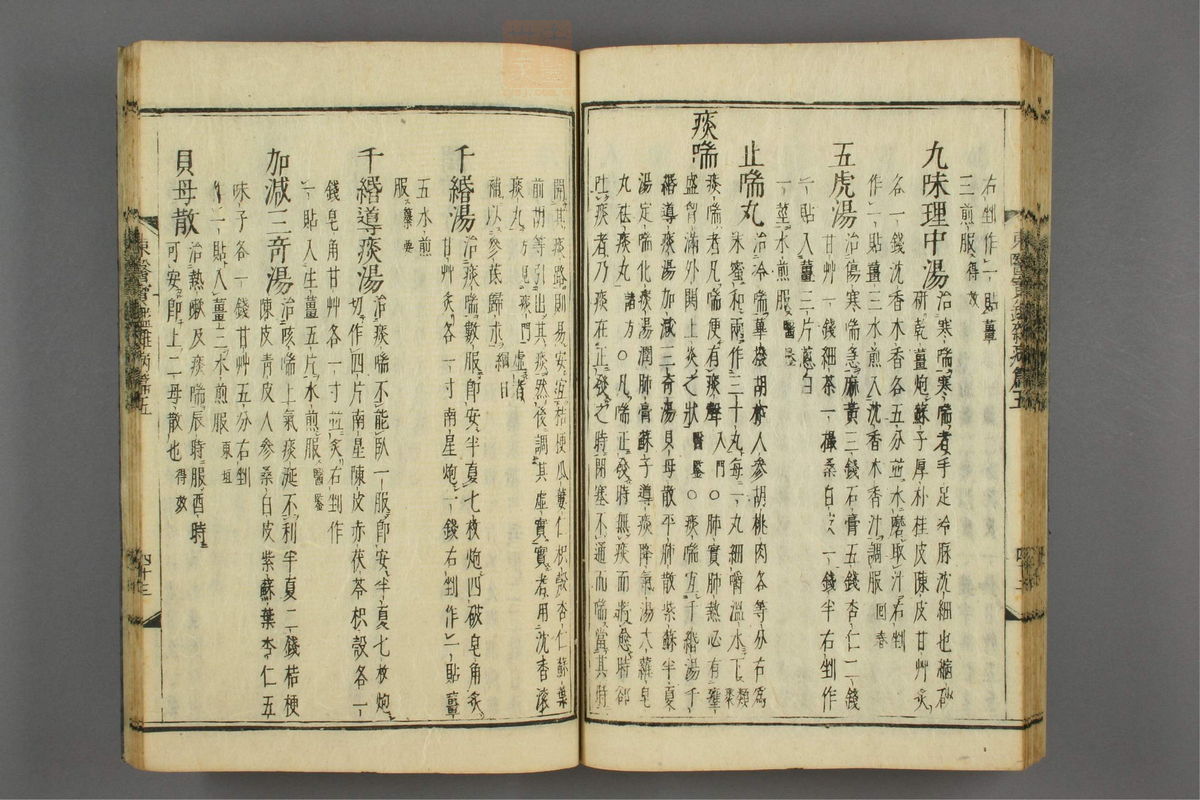 右剉作一貼薑
三煎服得效
九味理中湯治寒喘寒喘者手足冷脉沈細也縮砂
研乾薑炮蘇子厚朴桂皮陳皮甘艸炙
各一錢沈香木香各五分並水磨取汁右剉
作一貼薑三水煎入沈香木香汁調服回春
五虎湯治傷寒喘急麻黃三錢石膏五錢杏仁二錢
甘艸一錢細茶一撮桑白皮一錢半右剉作
一貼入薑三片葱白
一莖水煎服醫鑑
止喘丸治冷喘蓽撥胡椒人參胡桃肉各等分右爲
末蜜和兩作三十丸每一丸細嚼溫水下類聚
痰喘
痰喘者凡喘便有痰聲入門○肺實肺熱必有壅
盛胷滿外閧上炎之狀醫鑑○痰喘宜千緡湯千
緡導痰湯加減三奇湯貝母散平肺散紫蘇半夏
湯定喘化痰湯潤肺膏蘇子導痰降氣湯大蘿皂
丸祛痰丸諸方○凡喘正發時無痰而將愈時却
吐痰者乃痰在正發之時閉塞不通而喘當其時
開其痰路則易安宜桔梗瓜蔞仁枳殼杏仁蘇葉
前胡等引出其痰然後調其虛實實者用沈香滚
痰丸方見痰門虛者
補以參蓍歸朮綱目
千緡湯治痰喘數服卽安半夏七枚炮四破皂角炙
甘艸炙各一寸南星炮一錢右剉作一貼薑
五水煎
服纂要
千緡導痰湯治痰喘不能臥一服卽安半夏七枚炮
切作四片南星陳皮赤茯苓枳殼各一
錢皂角甘艸各一寸並炙右剉作
一貼入生薑五片水煎服醫鑑
加減三奇湯治咳喘上氣痰涎不利半夏二錢桔梗
陳皮靑皮人參桑白皮紫蘇葉杏仁五
味子各一錢甘艸五分右剉
作一貼入薑三水煎服東垣
貝母散治熱嗽及痰喘辰時服酉時
可安卽上二母散也得效
東醫寶鑑雜病卷之五
四十三